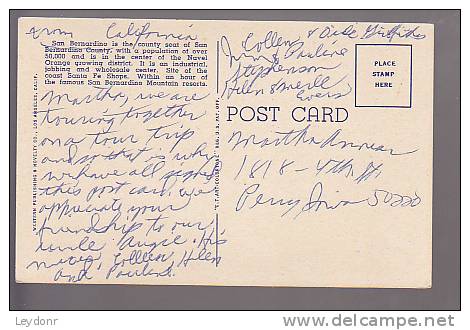 from California
San Bernardino is the county seat of San
Bernardino County, with a population of over
50,000 and is in the center of the Navel
Orange growing district. It is an industrial,
jobbing and wholesale center. Site of the
coast Santa Fe Shops. Within an hour of
the famous San Bernardino Mountain resorts.
Martha, we are
touring together
on a tour trip
and so that is why
we have all signed
this post card. We
appreciate your
friendship to our
Uncle Angie. His
nieces, Collen, Helen
and Pauline.
WESTERN PUBLISHING & NOVELTY CO., LOS ANGELES, CALIF.
"C.T. ART-COLORTONE" REG. U.S. PAT. OFF.
Collen & Dale Griffiths
Pauline
Stephenson
Helen & Merill
Evers
PLACE
STAMP
HERE
POST CARD
Martha
1818 - 4th St
Perry Iowa 50220
Leydorr / delcampe.net